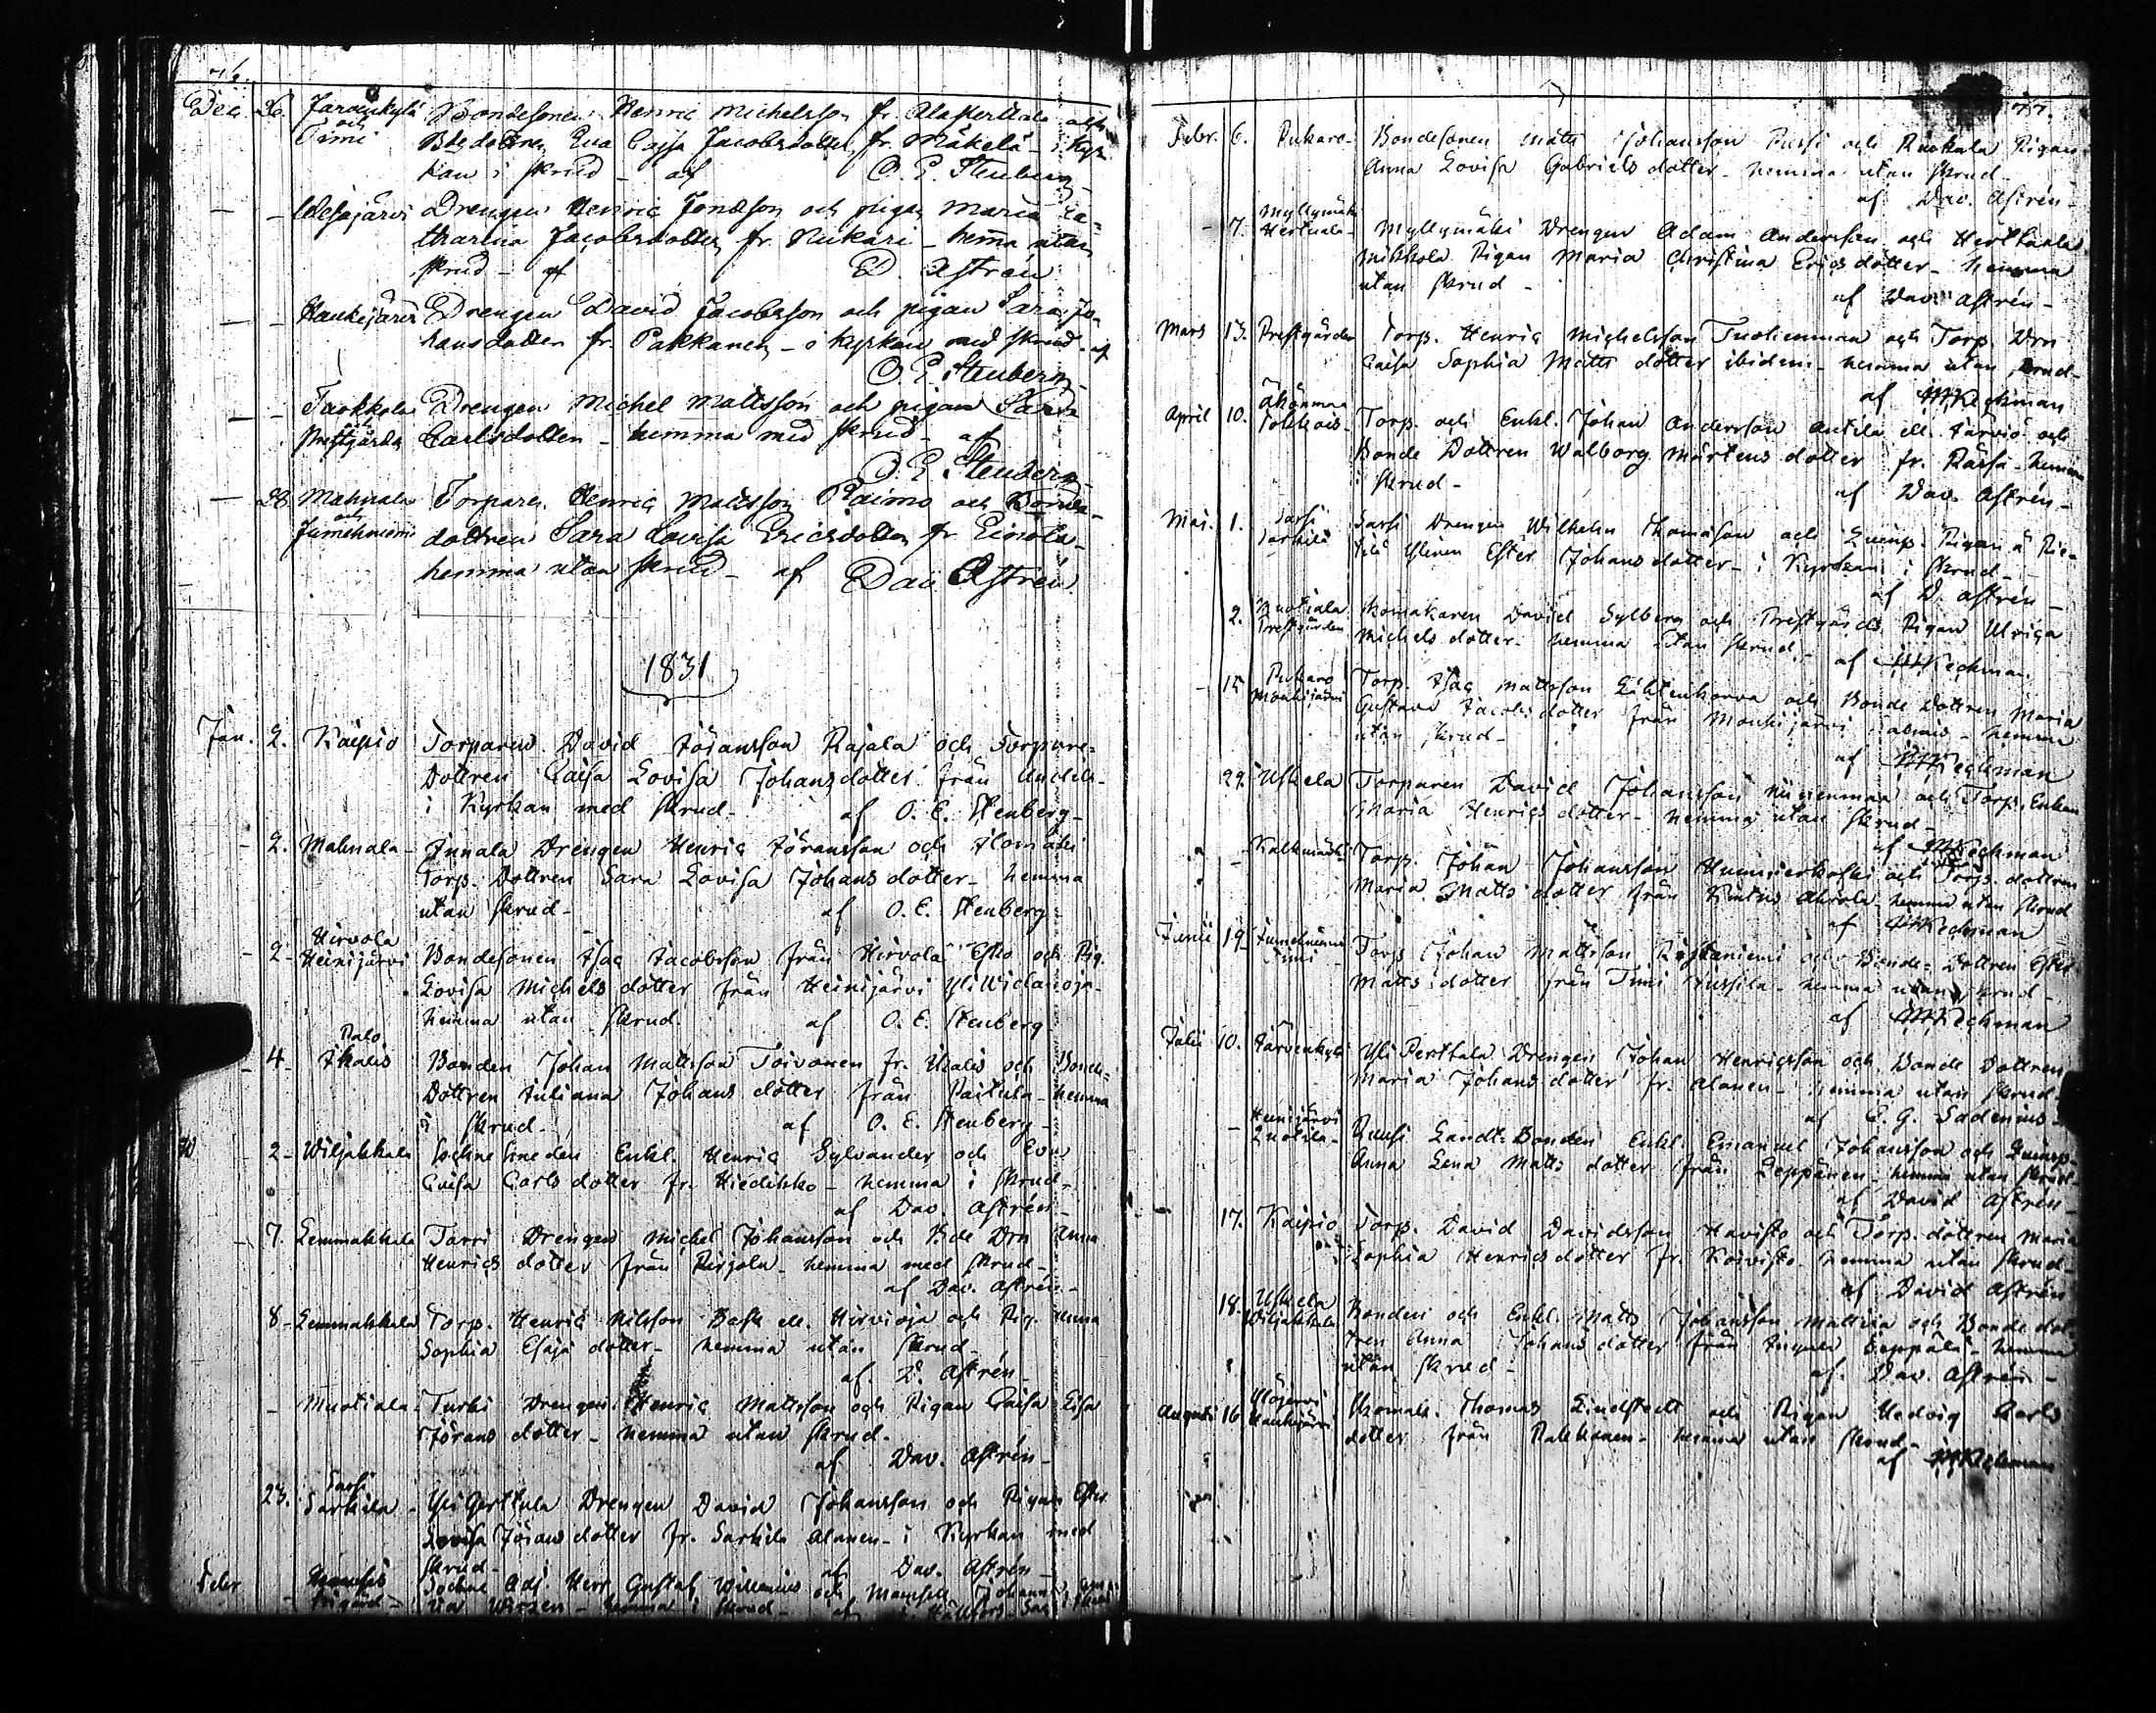 76.
Dec. 26. Järvenkylä Bondesonen Henric Michelsson fr. Alapertala och
och Timi Bdedottren Eva Cajsa Jacobsdotter fr. Mäkelä - i Kyr
kan i skrud - af O. E. Stenberg
Drengen Henric Jonasson och pigan Maria Ca-
tharina Jacobsdotter fr. Nukari - hemma utan
skrud - af D. Astrén
Haukijärvi Drengen David Jacobsson och pigan Sara Jo-
hansdotter fr. Pakkanen - i kyrkan med skrud - af
O. E. Stenberg
Drengen Michel Mattsson och pigan Sara
Carlsdotter - hemma med skrud - af
O. E. Stenberg
28 Mahnala Torparen Henric Mattsson Raimo och Bonde-
och Jumesniemi dottren Sara Lovisa Ericsdotter fr. Eerola -
hemma utan skrud - af Dav. Astrén
1831
Jan. 2. Kaipio Torparen David Jöransson Rajala och Torpare-
Dottren Caisa Lovisa Johansdotter från
i Kyrkan med skrud - af O. E. Stenberg -
- 2. Mahnala - Junala Drengen Henric Jöransson och Ilomäki
Torp. Dottren Sara Lovisa Johans dotter - hemma
utan skrud - af O. E. Stenberg
Hirvola
- 2 - Heinijärvi Bondesonen Isac Jacobsson från Hirvola Esko och Pig.
Lovisa Michels dotter från Heinijärvi Yli Widanoja -
hemma utan skrud. af O. E. Stenberg
- 4 - Ikalis Bonden Johan Mattsson Toivonen fr. Ikalis och Bonde-
Dottren Juliana Johans dotter från Paitula - hemma
i skrud - af O. E. Stenberg -
2 - Wiljakkala Sockne Smeden Enkl. Henric Sylvander och Eva
Caisa Carls dotter fr. Hiedikko - hemma i skrud -
af Dav. Astrén -
- 7. Lemmakkala Tarri Drengen Michel Johansson och Bde Drn Anna
Henrics dotter från Pirjola - hemma med skrud -
af Dav. Astrén -
8 - Lemmakkala Torp. Henric Nilsson Bask ell. Hirvioja och Pig. Anna
Sophia Esajæ dotter - hemma utan skrud -
af D. Astrén -
- Muotiala - Turki Drengen Henric Mattsson och Pigan Caisa Lisa
Jörans dotter - hemma utan skrud.
af Dav. Astrén -
Sarsi
23. Sarkila - Yli Perttula Drengen David Johansson och Pigan Ester
Lovisa Jörans dotter fr. Sarkila Alanen - i Kyrkan med
skrud - af Dav. Astrén -
Febr Sockne Adj. Herr Gustaf Willenius och Mamsell Johanna
hemma i skrud - af
77.
Febr. 6. Pukara - Bondesonen Matts Johansson Pussi och Ruokala Pigan
Anna Lovisa Gabriels dotter - hemma utan skrud -
af Dav. Astrén -
Myllymäki
- 7. Herttuala - Myllymäki Drengen Adam Andersson och Herttuala
Mikkola Pigan Maria Christina Erics dotter - hemma
utan skrud - af Dav. Astrén -
Mars 13. Prestgården Torp. Henric Michelsson Tuohenmaa och Torp. Drn
Caisa Sophia Matts dotter ibidem - hemma utan skrud -
af Kechman
April 10. Torp. och Enkl. Johan Andersson Antila ell. Järviö och
Bonde Dottren Walborg Mårtens dotter fr. Rassa - hemma
i skrud - af Dav. Astrén -
Maj. 1. Sarsi Sarkila Sarsi Drengen Wilhelm Thomasson och
Ester Johans dotter - i Kyrkan i skrud -
af D. Astrén -
2. Muotiala Prestgården Skomakaren David Sylberg och Prestgårds Pigan Ulrica
Michels dotter - hemma utan skrud - af Kechman
- 15 Pukara Mouhijärvi Torp. Isac Mattsson Lähtenkorva och Bonde Dottren Maria
Gustava Jacobs dotter från Mouhijärvi - hemma
utan skrud - af Kechman
29. Uskela Torparen David Johansson Niinenmaa och Torp. Enkan
Maria Henrics dotter - hemma utan skrud -
af Kechman
Torp. Johan Johansson och Torp. dottren
Maria Matts dotter från - hemma utan skrud
af Kechman
Junii 19 Jumesniemi Timi Torp. Johan Mattsson Ristaniemi och Bonde-Dottren Ester
Matts dotter från Timi Jussila - hemma utan skrud -
af Kechman
Julii 10. Järvenkylä Yli Perttala Drengen Johan Henricsson och Bonde Dottren
Maria Johans dotter fr. Alanen - hemma utan skrud -
af E. G. Sadenius -
- Heinijärvi Luotila - Landt-Bonden Enkl. Emanuel Johansson och
Anna Lena Matts dotter från Leppänen - hemma utan skrud -
af David Astrén -
17. Kaipio Torp. David Davidsson Havisto och Torp. dottren Maria
Sophia Henrics dotter fr. Koivisto - hemma utan skrud -
af David Astrén
18. Uskela Wiljakkala Bonden och Enkl. Matts Johansson Mattila och Bonde dot-
tren Anna Johans dotter från Seppälä - hemma
utan skrud - af Dav. Astrén -
Augusti 16 Ylöjärvi Haukijärvi Skomak. Thomas Lindstedt och Pigan Hedvig Carls
dotter från Pakkanen - hemma utan skrud -
af Kechman